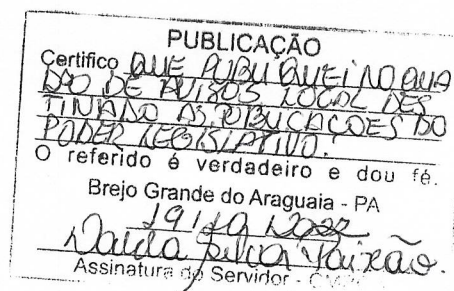 PUBLICAÇÃO
Certifico QUE PUBLIQUEI NO QUA
DRO DE AVISOS LOCAL DES
TINADO AS PUBLICACOES DO
PODER LEGISLATIVO.
O referido é verdadeiro e dou fé.
Brejo Grande do Araguaia - PA
19/10/2022
Silva Paixão.
Assinatura do Servidor -